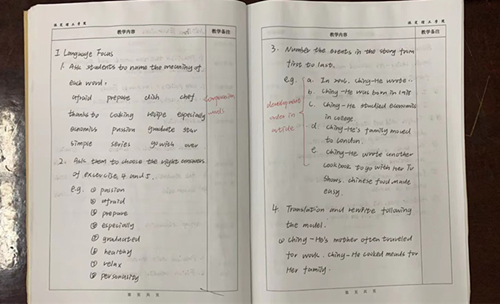 教学内容
教学备注
I Language Focus
1. Ask students to name the meaning of
each word.
afraid prepare dish chef
thanks to cooking recipe especially
economics passion graduate star
simple series go with over
2. Ask them to choose the right answers
of excercise 4 and 5.
e.g. ① passion
② afraid
③ prepare
④ especially
⑤ graduated
⑥ healthy
⑦ relax
⑧ personality
教学内容
教学备注
3. Number the events in the story from
first to last.
e.g. a. In 2005. Ching-He wrote..
b Ching-He was born in 1978
c. Ching-He studied economic
in college
d Ching-He's family moved
to London.
e. Ching-He wrote another
cookbook to go with her TV
Shows. Chinese food made
easy.
development
order in
4 Translation and rewrite following
the model.
① Ching-He's mother often traveled
for work. Ching-He cooked meals for
Her family.